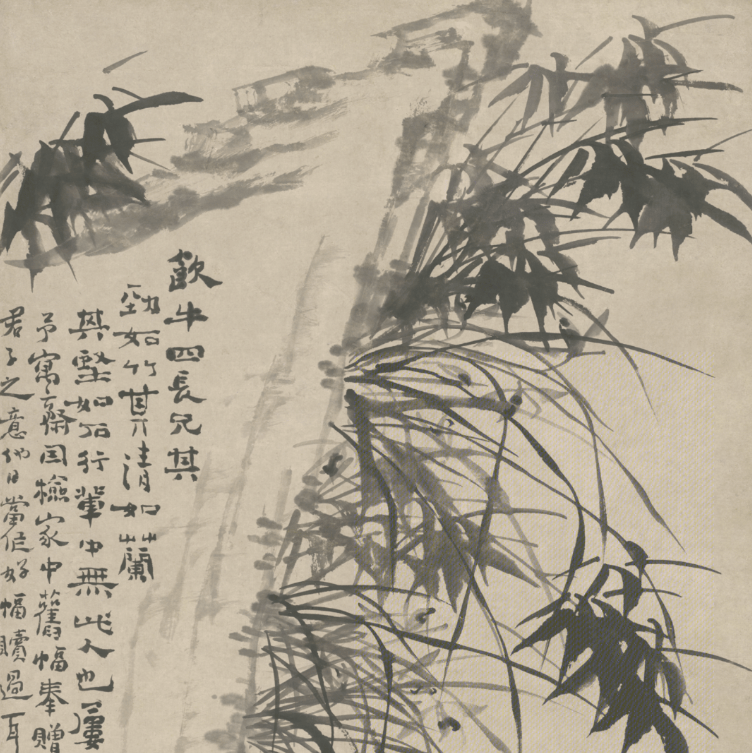 歙牛四長兄其
勁如竹其清如蘭
其堅如石行輩中無此人也屢
予寓齋因檢家中舊幅奉贈
君子之意他日當作好幅贖過耳